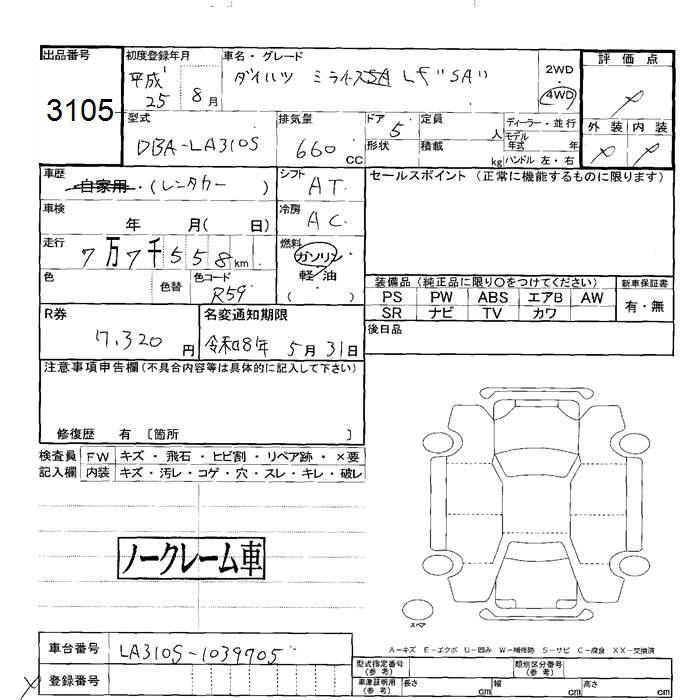 出品番号
3105
初度登録年月
平成
25 8月
車名・グレード
ダイハツ ミライース Lf"SA"
2WD
4WD
評価点
外装 内装
型式
DBA-LA310S
排気量
660 cc
ドア 5
形状
定員 人
積載 kg
ディーラー・並行
モデル
年式 年
ハンドル 左・右
車歴
自家用・(レンタカー )
シフト AT
セールスポイント (正常に機能するものに限ります)
車検
年 月( 日)
冷房 AC
走行
7万7千558km
燃料
ガソリン
軽・油
( )
色
色替
色コード
R59
装備品 (純正品に限り○をつけてください)
PS PW ABS エアB AW
SR ナビ TV カワ
新車保証書
有・無
R券
7,320円
名変通知期限
令和8年 5月31日
後日品
注意事項申告欄(不具合内容等は具体的に記入して下さい)
修復歴 有 〔箇所 〕
検査員 FW キズ・飛石・ヒビ割・リペア跡・×要
記入欄 内装 キズ・汚レ・コゲ・穴・スレ・キレ・破レ
ノークレーム車
スペア
A-キズ E-エクボ U-凹み W-補修跡 S-サビ C-腐食 XX-交換済
車台番号 LA310S-1039705
登録番号
型式指定番号
(参考)
類別区分番号
(参考)
車庫証明用
(参考)
長さ cm 幅 cm 高さ cm